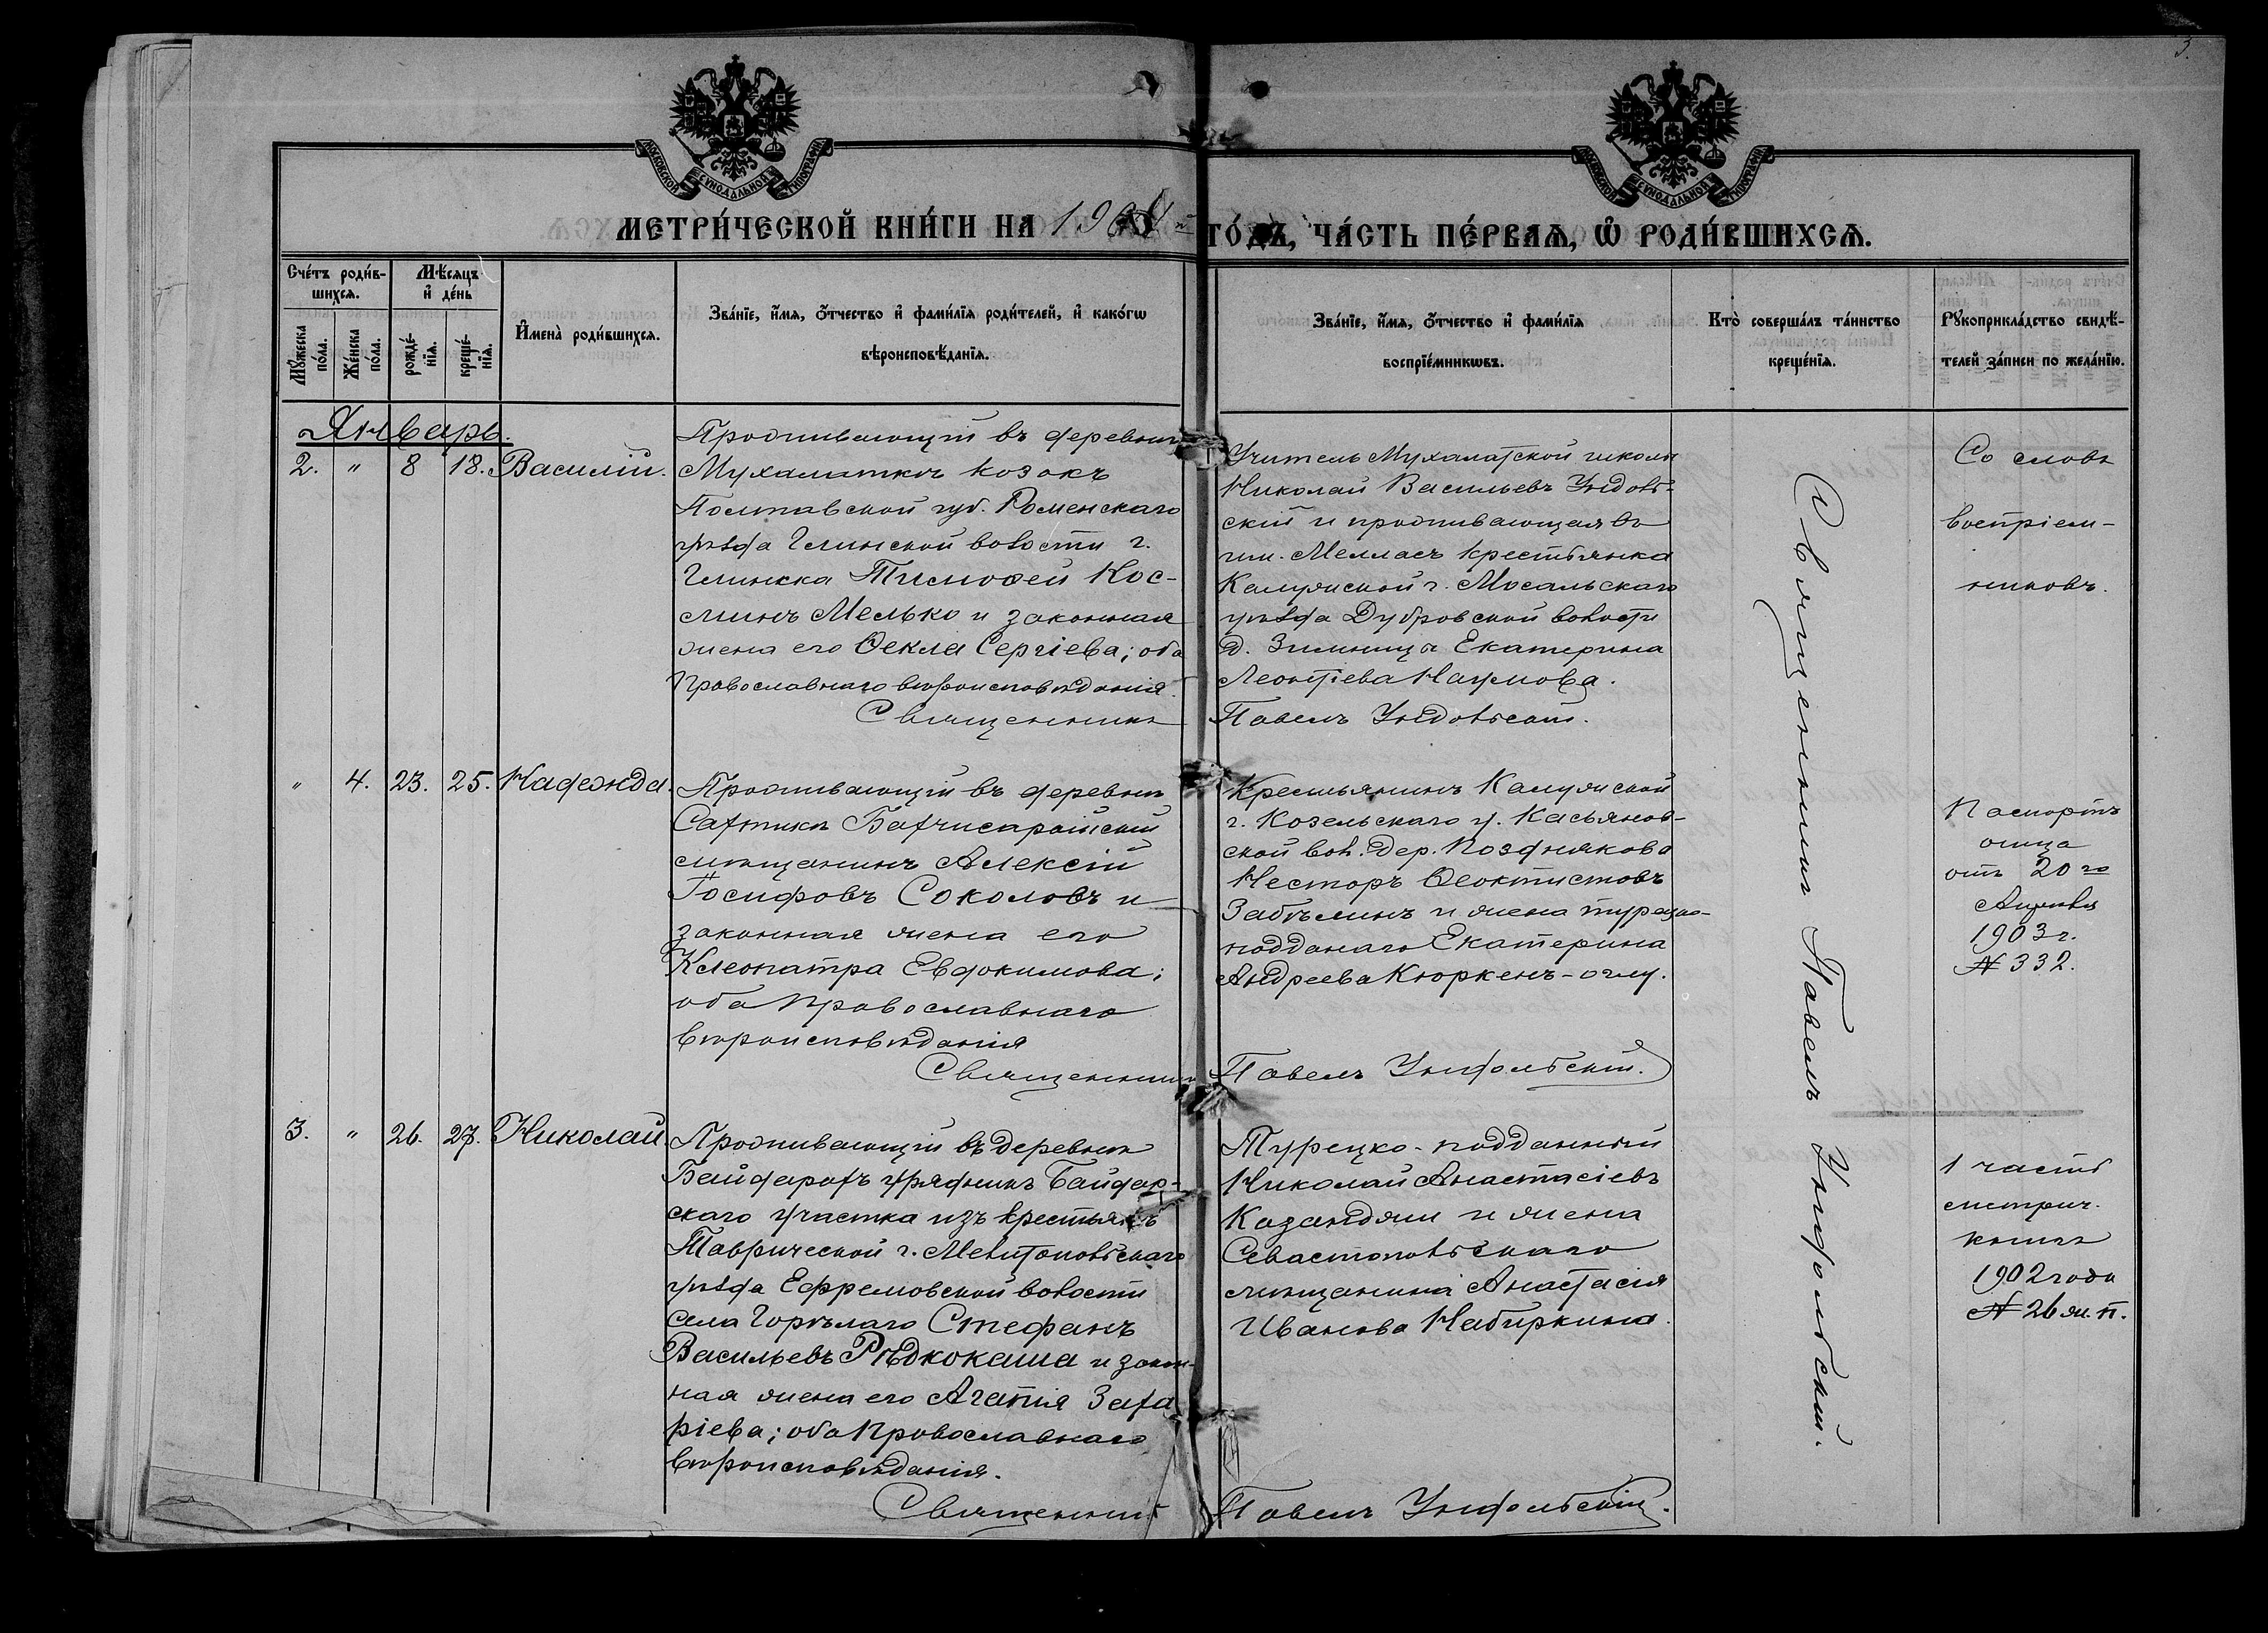 3.
МОСКОВСКОЙ СѴНОДАЛЬНОЙ ТИПОГРАФІИ
МОСКОВСКОЙ СѴНОДАЛЬНОЙ ТИПОГРАФІИ
МЕТРИ́ЧЕСКОЙ КНИ́ГИ НА 1904й ГО́ДЪ, ЧА́СТЬ ПЕ́РВАѦ, Ѡ҆ РОДИ́ВШИХСѦ.
Сче́тъ роди́в-
шихсѧ.
Мѣ́сѧцъ
и҆ де́нь
Мꙋ́жеска
по́ла.
Же́нска
по́ла.
рожде́-
нїѧ.
креще́-
нїѧ.
И҆мена̀ роди́вшихсѧ.
Зва́нїе, и҆́мѧ, ѻ҆́тчество и҆ фами́лїѧ роди́телей, и҆ како́гѡ
вѣроисповѣ́данїѧ.
Зва́нїе, и҆́мѧ, ѻ҆́тчество и҆ фами́лїѧ
воспрїе́мникѡвъ.
Кто̀ соверша́лъ та́инство
креще́нїѧ.
Рꙋкоприкла́дство свидѣ́-
телей за́писи по жела́нїю.
Январь.
2. " 8 18. Василій.
Проживающій въ деревнѣ
Мухалаткѣ козакъ
Полтавской губ. Роменскаго
уѣзда Глинской волости г.
Глинска Тимоѳей Кос-
минъ Мелько и законная
жена его Ѳекла Сергіева; оба
Православнаго вѣроисповѣданія.
Священникъ Павелъ Ундольскій.
Учитель Мухалатской школы
Николай Васильевъ Ундоль-
скій и проживающая въ
им. Мелласъ крестьянка
Калужской г. Мосальскаго
уѣзда Дубровской волости
д. Зимницы Екатерина
Леонтіева Наумова.
Со словъ
воспріем-
никовъ.
" 4. 23. 25. Надежда.
Проживающій въ деревнѣ
Сахтикъ Бахчисарайскій
мѣщанинъ Алексій
Іосифовъ Соколовъ и
законная жена его
Клеопатра Евдокимова;
оба Православнаго
вѣроисповѣданія
Священникъ Павелъ Ундольскій.
Крестьянинъ Калужской
г. Козельскаго у. Касьянов-
ской вол. дер. Позднякова
Несторъ Ѳеоктистовъ
Забѣлинъ и жена турецко-
подданаго Екатерина
Андреева Кюркенъ-оглу.
Паспортъ
отца
отъ 20го
1903 г.
№ 332.
3. " 26. 27. Николай.
Проживающій въ деревнѣ
Байдарахъ урядникъ Байдар-
скаго участка изъ крестьянъ
Таврической г. Мелитопольскаго
уѣзда Ефремовской волости
села Горѣлаго Стефанъ
Васильевъ Рѣдкокаша и закон-
ная жена его Агапія Заха
ріева; оба Православнаго
вѣроисповѣданія.
Священникъ Павелъ Ундольскій.
Турецко-подданный
Николай Анастасіевъ
Казанджи и жена
Севастопольскаго
мѣщанина Анастасія
Иванова Набиркина.
1 часть
метрич.
книги
1902 года
№ 26 ж. п.
Священникъ Павелъ Ундольскій.